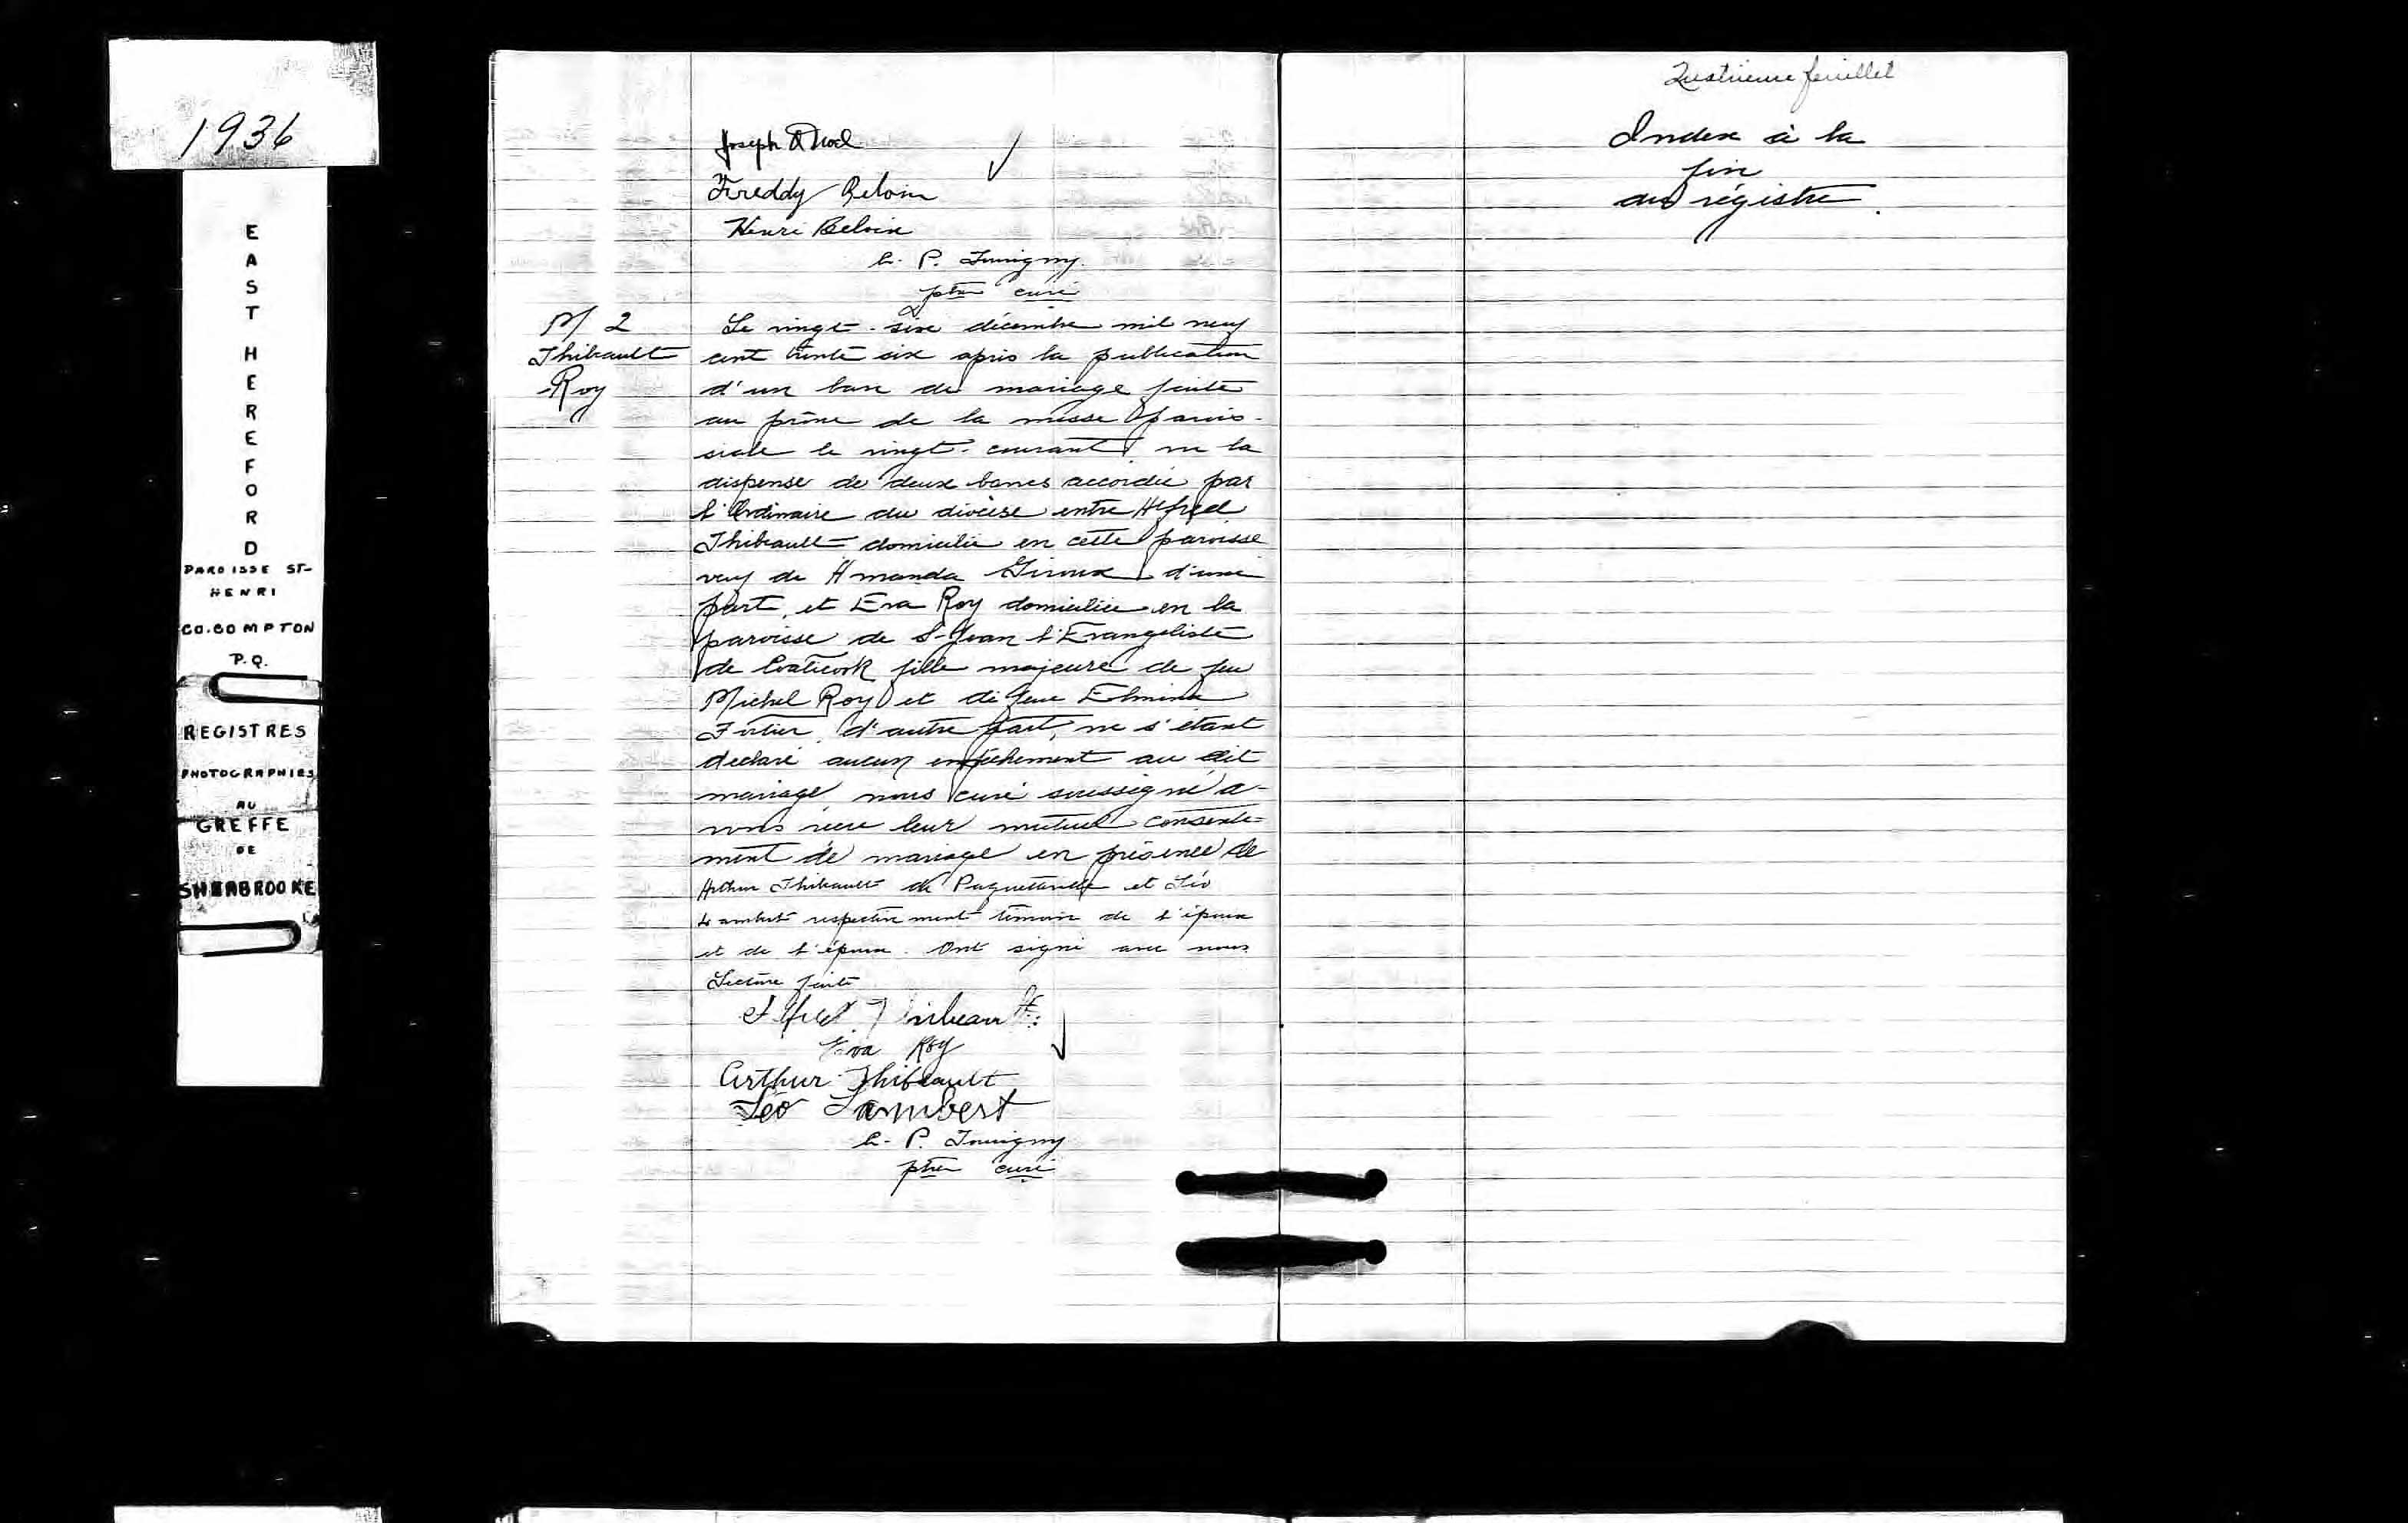 1936
EAST HEREFORD
PAROISSE ST-
HENRI
CO. COMPTON
P.Q.
REGISTRES
PHOTOGRAPHIES
AU
GREFFE
DE
SHERBROOKE
Joseph
Freddy Beloin
Henri Beloin
P.
ptre curé
M 2
Thibault
Roy
Le vingt-six décembre mil neuf
cent trente six après la publication
d'un ban de mariage faite
au prône de la messe parois-
siale le vingt courant vu la
dispense de deux bancs accordée par
l'Ordinaire du diocèse entre Alfred
Thibault domicilié en cette paroisse
veuf de Amanda Giroux d'une
part, et Eva Roy domiciliée en la
paroisse de S-Jean l'Evangeliste
de Coaticook fille majeure de feu
Michel Roy et de feue Elmina
Fortier, d'autre part, ne s'étant
declaré aucun empêchement au dit
mariage, nous curé soussigné a-
vons reçu leur mutuel consente-
ment de mariage en présence de
Arthur Thibault de Paquetteville et Léo
Lambert respectivement témoin de l'époux
et de l'épouse. Ont signé avec nous
Lecture faite
Alfred Thibeault
Eva Roy
Arthur Thibeault
Léo Lambert
P.
ptre curé
Quatrième feuillet
Index à la
fin
du régistre.